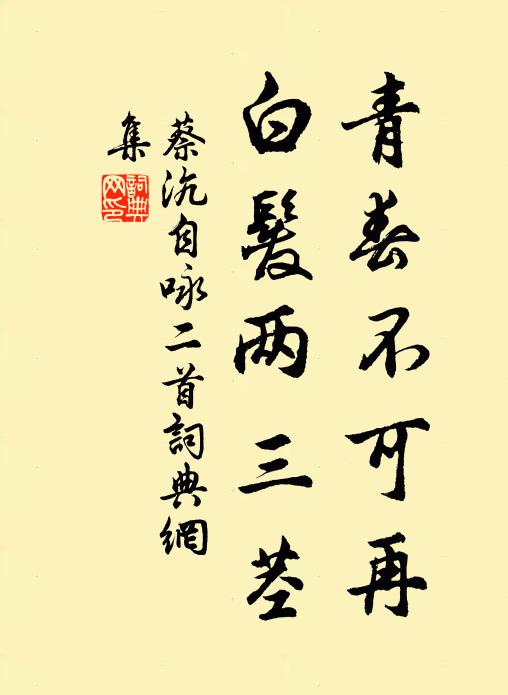 青春不可再
白髮两三茎
蔡沆自咏二首詞典網
集
詞典
网印